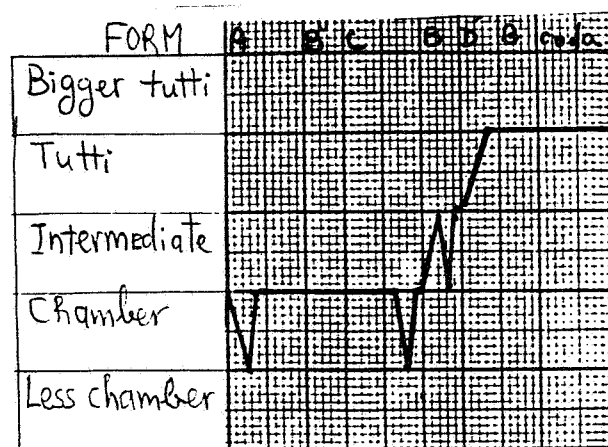 FORM A B C B D B coda
Bigger tutti
Tutti
Intermediate
Chamber
Less chamber